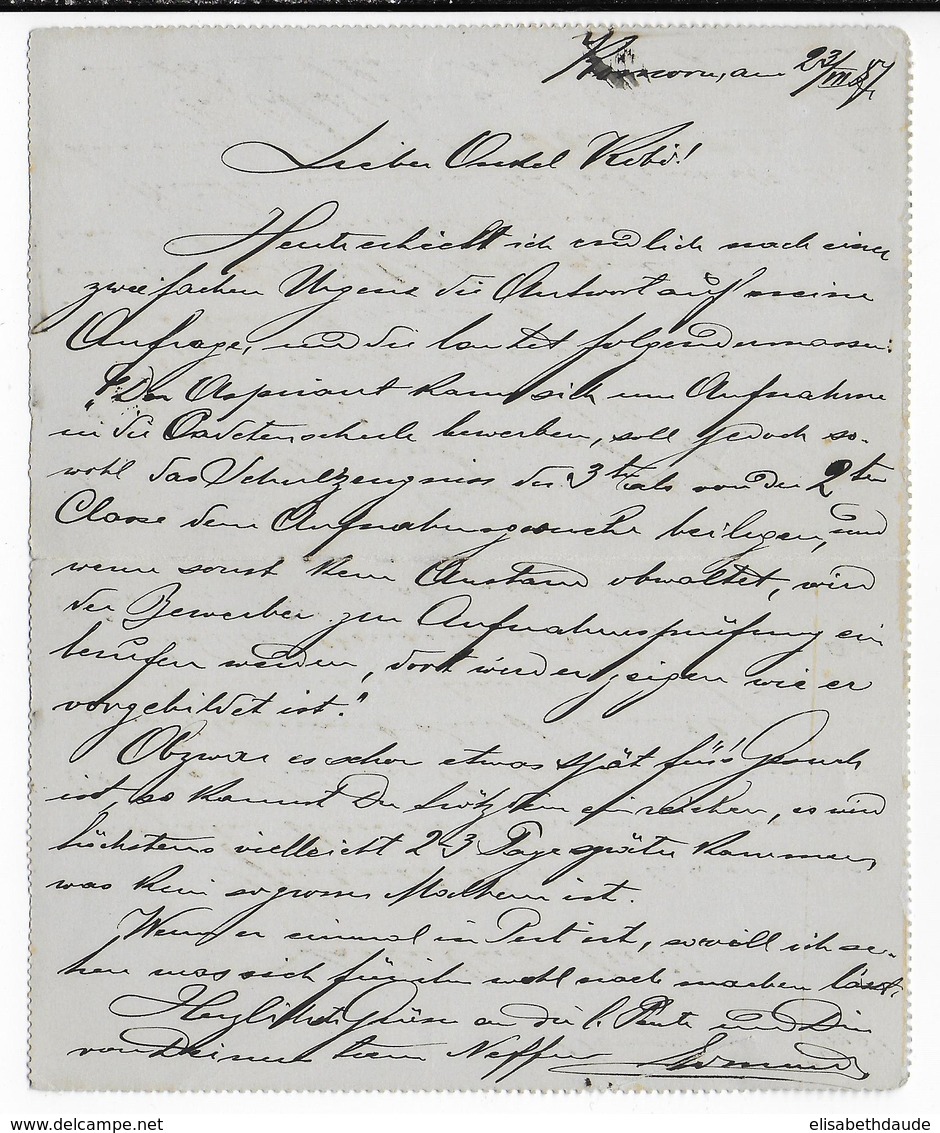 Komorn, am 23/VII 87
Lieber Onkel Kobi!
Heute erhielt ich endlich nach einer
zweifachen Urgenz die Antwort auf meine
Anfrage, und die lautet folgendermassen:
"Der Aspirant kann sich um Aufnahme
in die Cadetenschule bewerben, soll jedoch so-
wohl das Schulzeugniss der 3ten als von der 2ten
Classe dem Aufnahmsgesuche beilegen, und
wenn sonst kein Anstand obwaltet, wird
der Bewerber zur Aufnahmsprüfung ein
berufen werden, dort wird er zeigen wie er
vorgebildet ist."
Obzwar es schon etwas spät für's Gesuch
ist, so kannst Du trotzdem einreichen, es wird
höchstens vielleicht 2-3 Tage später kommen,
was kein so grosses Malheur ist.
Wenn er einmal in Pest ist, so will ich se-
hen was sich für ihn wohl noch machen lässt.
Herzlichste Grüsse an die l. Tante und Dir
von Deinem treuen Neffen Edmund
elisabethdaude